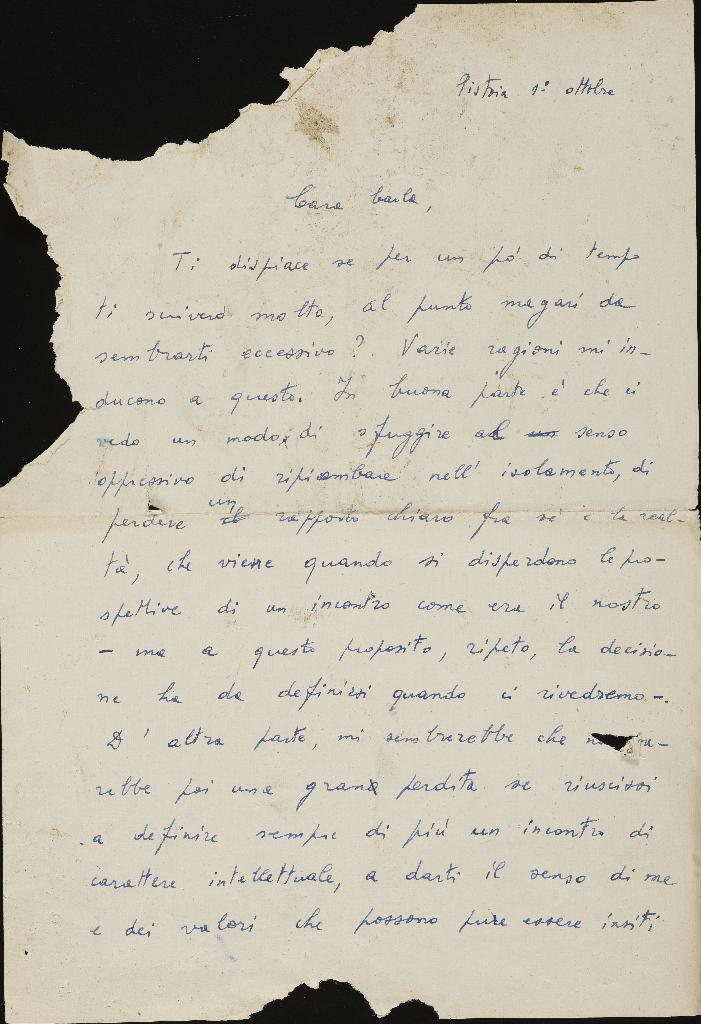 Pistoia 1° ottobre
Cara Carla,
Ti dispiace se per un pó di tempo
ti scriverò molto, al punto magari da
sembrarti eccessivo? Varie ragioni mi in-
ducono a questo. In buona parte è che ci
vedo un modo, di sfuggire al un senso
oppressivo di ripiombare nell' isolamento, di
perdere il un rapporto chiaro fra sé e la real-
tà, che viene quando si disperdono le pro-
spettive di un incontro come era il nostro
- ma a questo proposito, ripeto, la decisio-
ne ha da definirsi quando ci rivedremo -.
D' altra parte, mi sembrerebbe che
rebbe poi una grande perdita se riuscissi
a definire sempre di più un incontro di
carattere intellettuale, a darti il senso di me
e dei valori che possono pure essere insiti